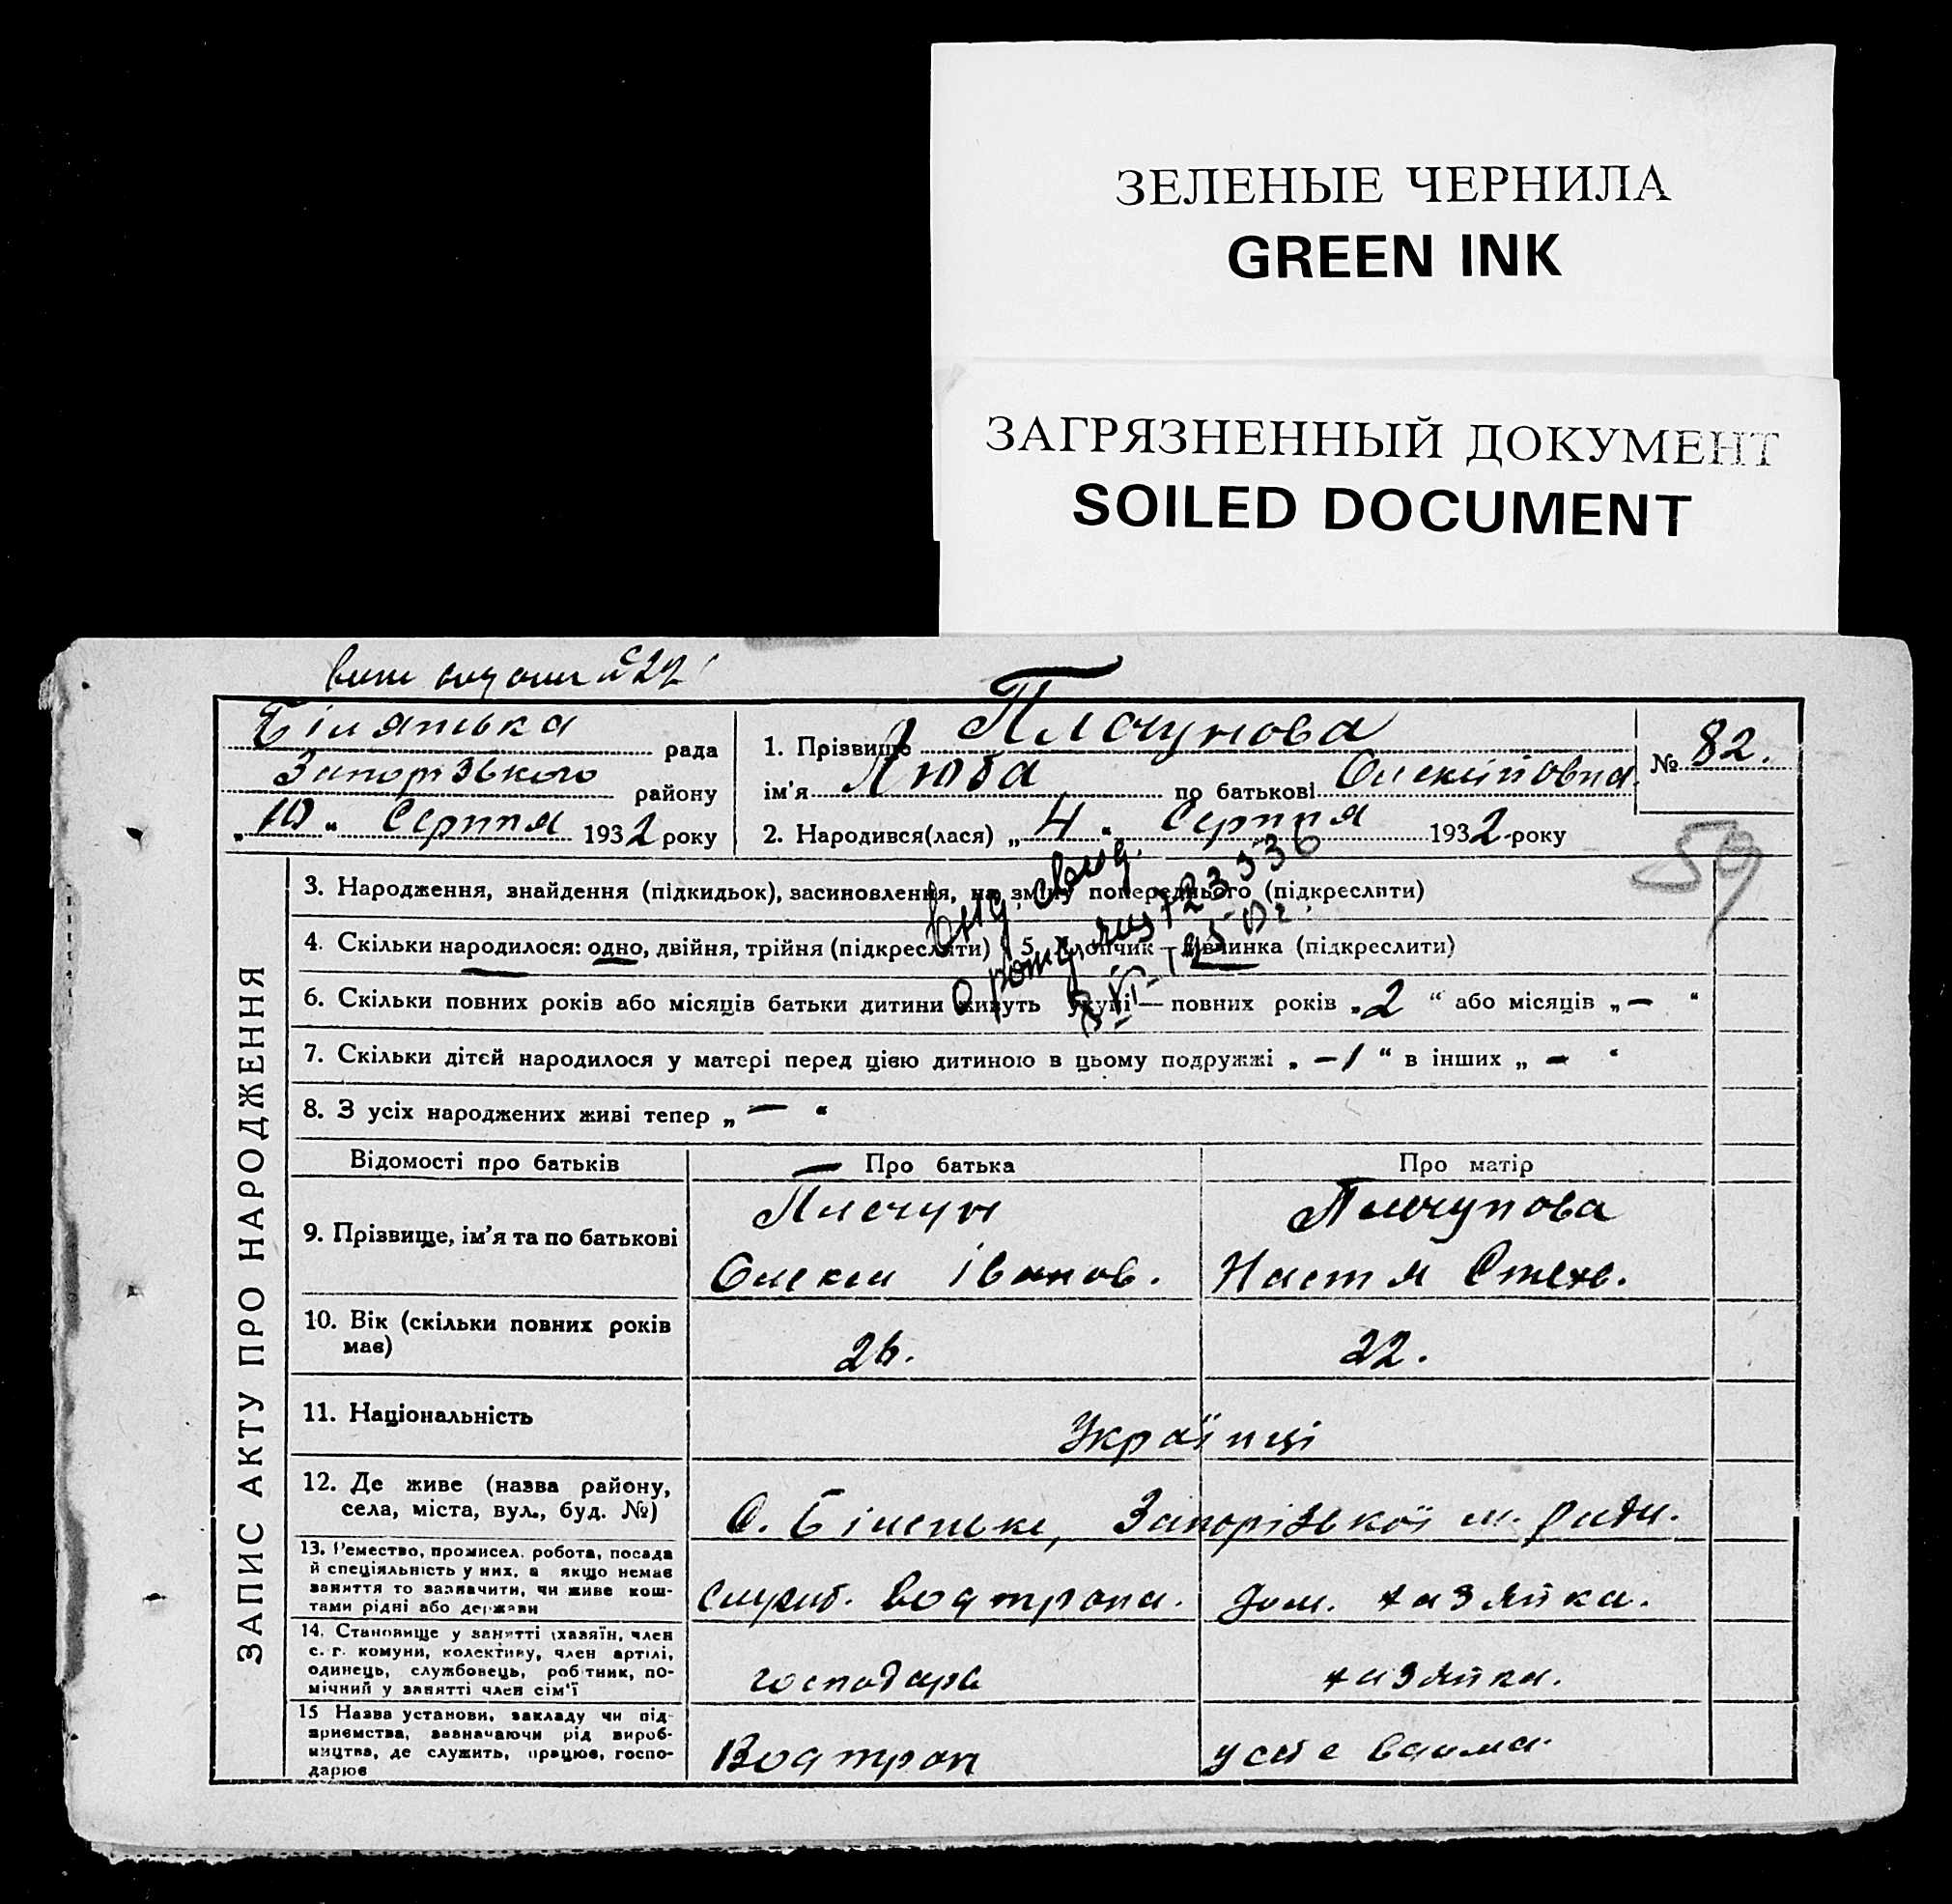 ЗЕЛЕНЫЕ ЧЕРНИЛА
GREEN INK
ЗАГРЯЗНЕННЫЙ ДОКУМЕНТ
SOILED DOCUMENT
ЗАПИС АКТУ ПРО НАРОДЖЕННЯ
Білянська рада
Запорізького району
„10“ Серпня 1932 року
1. Прізвище Плачунова
ім'я Люба по батькові Олексіивна
№ 82.
2. Народився(лася) „4“ Серпня 1932 року
59
3. Народження, знайдення (підкидьок), засиновлення, на зміну попереднього (підкреслити)
4. Скільки народилося: одно, двійня, трійня (підкреслити) 5. Хлопчик — дівчинка (підкреслити)
6. Скільки повних років або місяців батьки дитини живуть укупі — повних років „2“ або місяців „—“
7. Скільки дітей народилося у матері перед цією дитиною в цьому подружжі „—1“ в інших „—“
8. З усіх народжених живі тепер „—“
Відомості про батьків Про батька Про матір
9. Прізвище, ім'я та по батькові
Плачун
Олексій Іванов.
Плачунова
Настя Степ.
10. Вік (скільки повних років має)
26. 22.
11. Національність
Українці
12. Де живе (назва району, села, міста, вул., буд. №)
С. Біленьке, Запорізької м. Ради.
13. Ремество, промисел, робота, посада
й спеціяльність у них, а якщо немає
заняття то зазначити, чи живе кош-
тами рідні або держави
служб. Водтропа. дом. хазяйка.
14. Становище у занятті (хазяїн, член
с.-г. комуни, колективу, член артілі,
одинець, службовець, робітник, по-
мічний у занятті член сім'ї
господарь хазяйка.
15 Назва установи, закладу чи під-
приємства, зазначаючи рід вироб-
ництва, де служить, працює, госпо-
дарює
Водтроп у себе вдома.